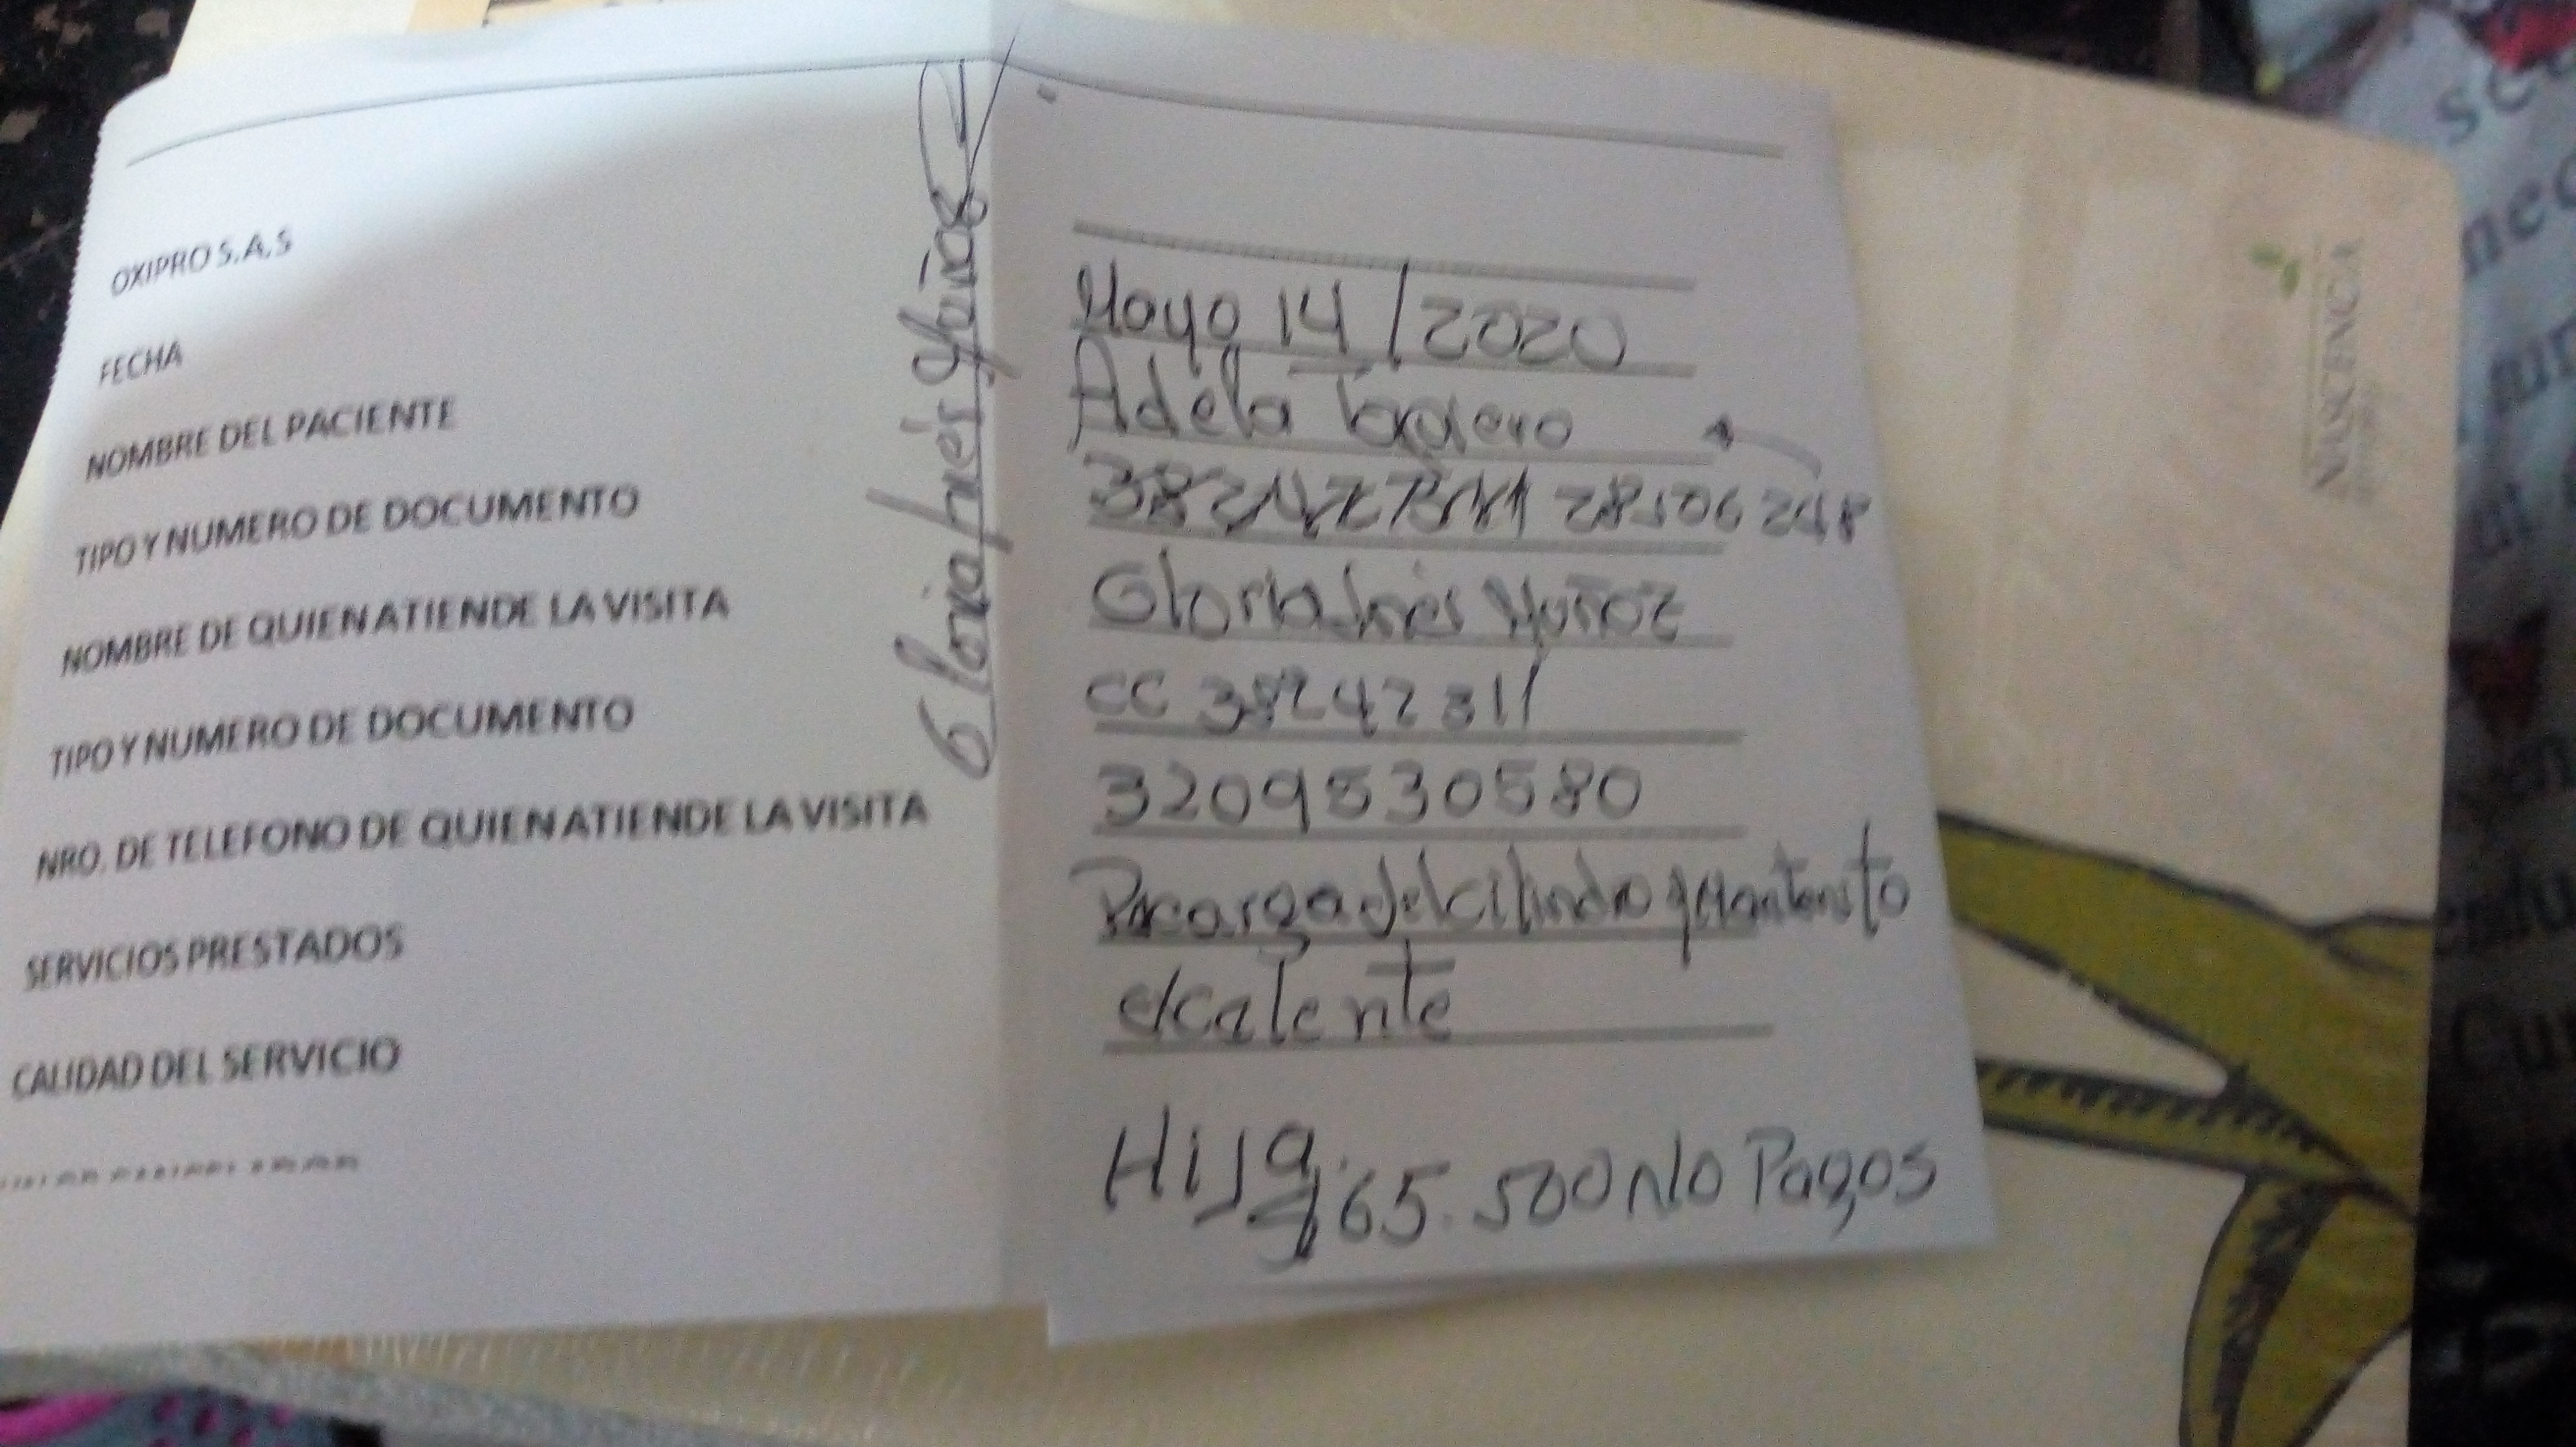 OXIPRO S.A.S
FECHA
Mayo 14/2020
NOMBRE DEL PACIENTE
Adela
TIPO Y NUMERO DE DOCUMENTO
28506248
NOMBRE DE QUIEN ATIENDE LA VISITA
Gloria Inés Muñoz
TIPO Y NUMERO DE DOCUMENTO
CC 38242311
NRO. DE TELEFONO DE QUIEN ATIENDE LA VISITA
3209530580
SERVICIOS PRESTADOS
Recarga del cilindro y
CALIDAD DEL SERVICIO
excalente
Hija
65.500 No Pagos
Gloria Inés Muñoz
NASCENCIA